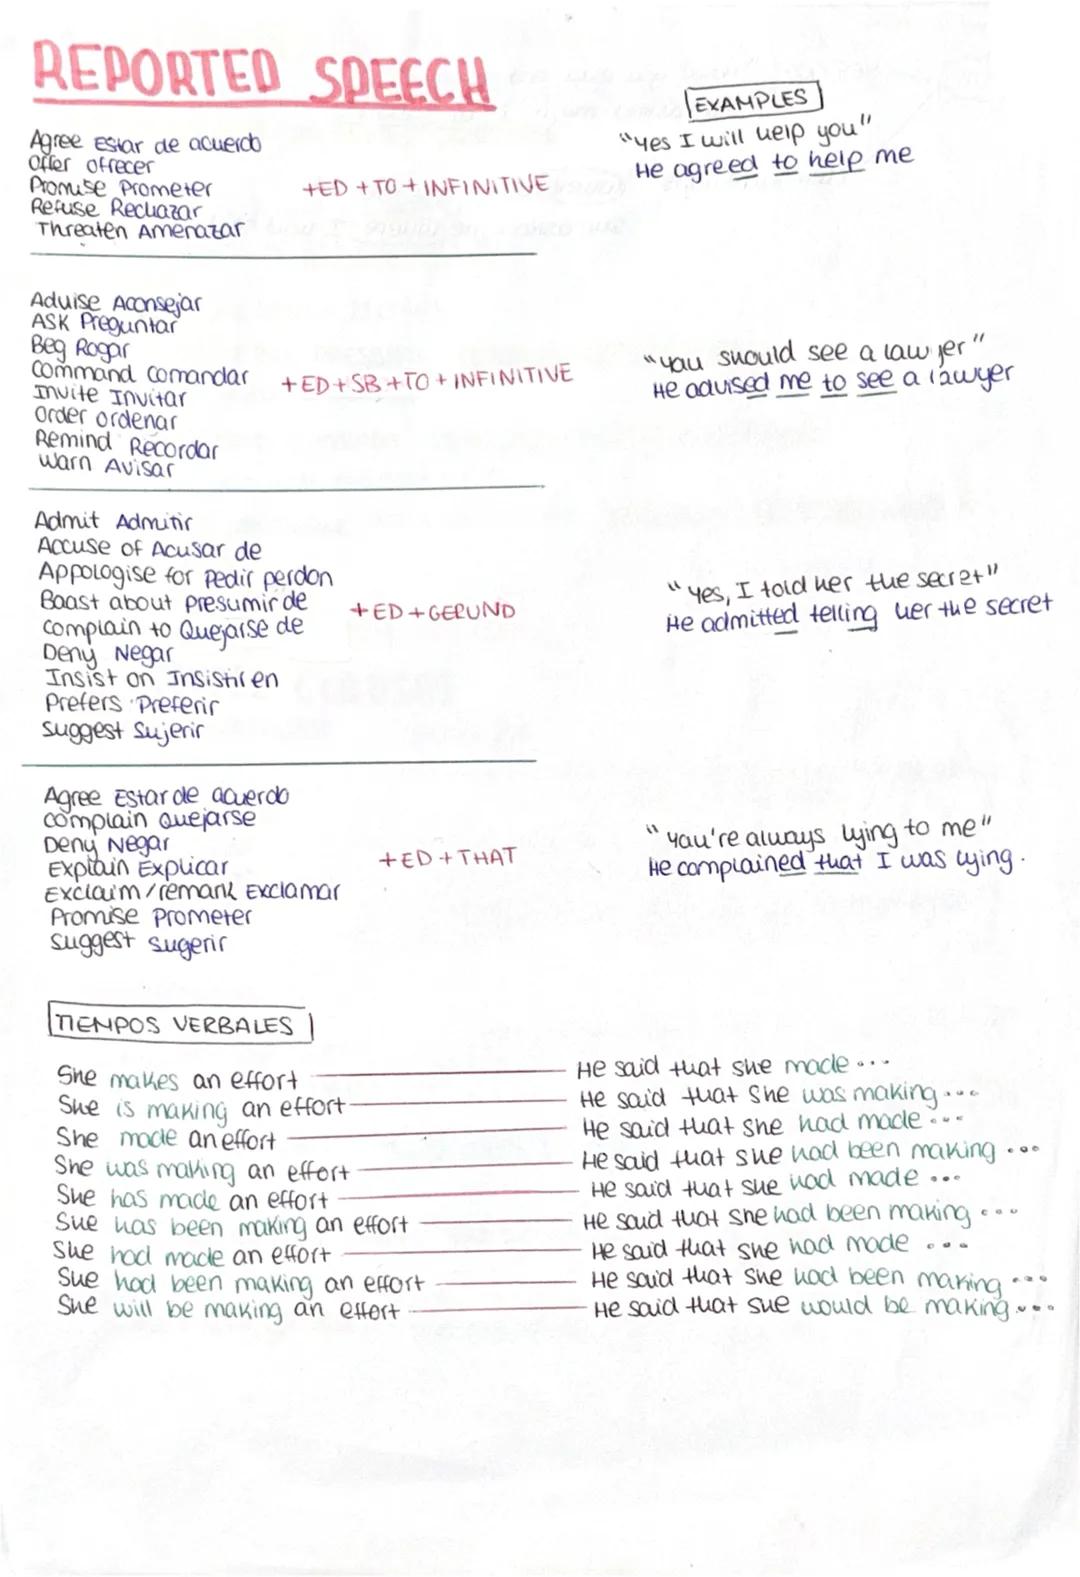 REPORTED SPEECH
EXAMPLES
Agree Estar de acuerdo
Offer ofrecer
Promise Prometer
Refuse Rechazar
Threaten Amenazar
+ED + TO + INFINITIVE
"Yes I will help you"
He agreed to help me
Advise Aconsejar
ASK Preguntar
Beg Rogar
Command Comandar
Invite Invitar
Order ordenar
Remind Recordar
Warn Avisar
+ED+SB+TO+INFINITIVE
"you should see a lawyer"
He advised me to see a lawyer
Admit Admitir
Accuse of Acusar de
Appologise for Pedir perdon
Boast about Presumir de
complain to Quejarse de
Deny Negar
Insist on Insistir en
Prefers Preferir
suggest Sujerir
+ED+GERUND
"Yes, I told her the secret"
He admitted telling her the secret
Agree Estar de acuerdo
complain Quejarse
Deny Negar
Explain Explicar
Exclaim/remark Exclamar
Promise Prometer
suggest sugerir
+ED+THAT
"You're always lying to me"
He complained that I was lying.
TIEMPOS VERBALES
She makes an effort He said that she made...
She is making an effort He said that she was making...
She made an effort He said that she had made...
She was making an effort He said that she had been making...
She has made an effort He said that she had made...
She has been making an effort He said that she had been making...
She had made an effort He said that she had made...
She had been making an effort He said that she had been making...
She will be making an effort He said that she would be making...